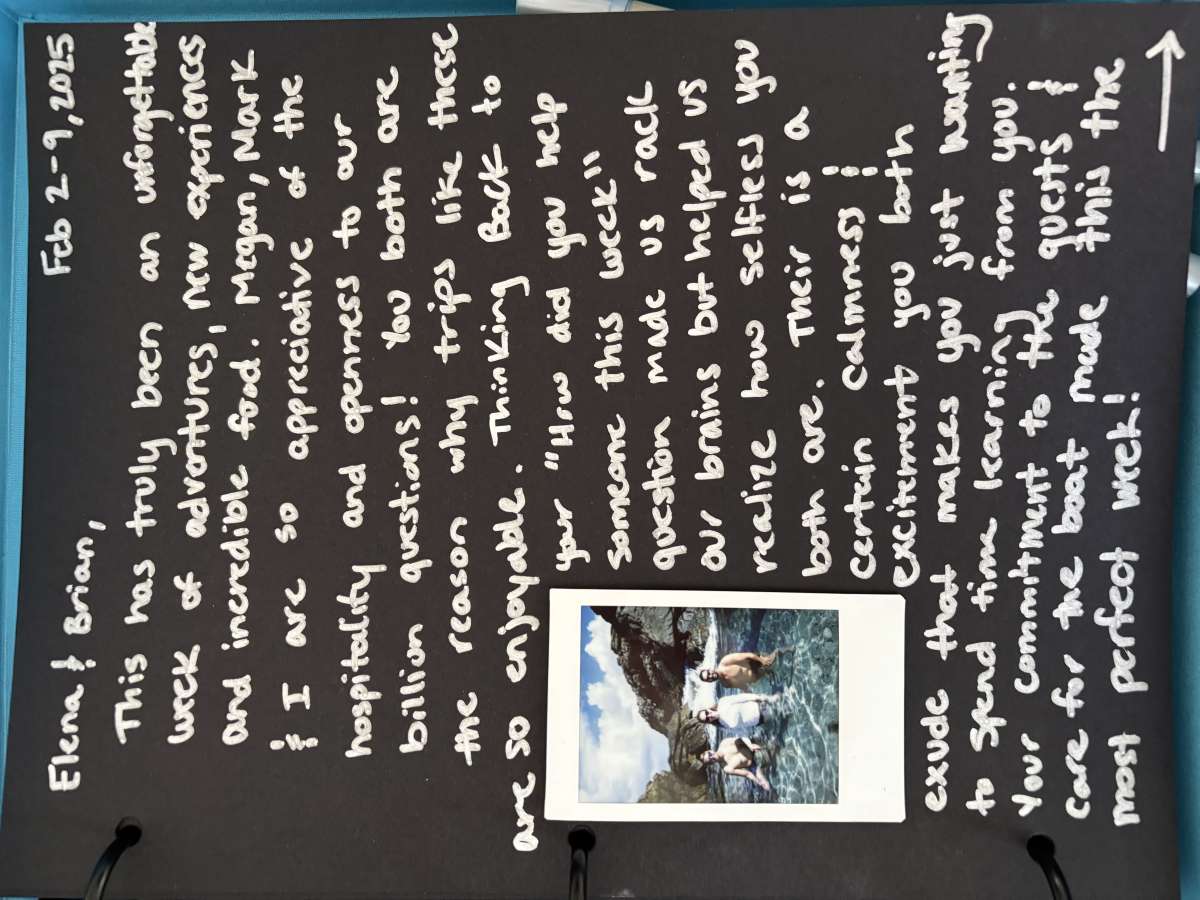 Feb 2-9, 2025
Elena & Brian,
This has truly been an unforgettable
week of adventures, new experiences
and incredible food. Megan, Mark
& I are so appreciative of the
hospitality and openness to our
billion questions! You both are
the reason why trips like these
are so enjoyable. Thinking Back to
your "How did you help
someone this week"
question made us rack
our brains but helped us
realize how selfless you
both are. Their is a
certain calmness &
excitement you both
exude that makes you just wanting
to spend time learning from you.
Your commitment to the guests &
care for the boat made this the
most perfect week!
→